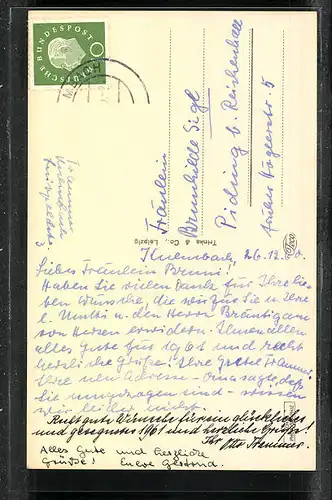 DEUTSCHE BUNDESPOST
Fräulein
Brunhilde Sigl
Piding b. Reichenhall
früher Höglerstr. 5
Trinks & Co., Leipzig
26.12.60.
Liebes Fräulein Brunni!
Haben Sie vielen Dank für Ihre lie-
ben Wünsche, die wir für Sie u. Ihre
l. Mutti u. den Herrn Bräutigam
von Herzen erwidern. Ihnen allen
alles Gute für 1961 und recht
herzliche Grüße! Ihre Gretel
Ihre neue Adresse - Oma sagte, daß
Sie umgezogen sind - wissen
wir leider nicht.
Recht gute Wünsche für ein glückliches
und gesegnetes 1961 und herzliche Grüße!
Ihr Otto
Alles Gute und herzliche
Grüße!